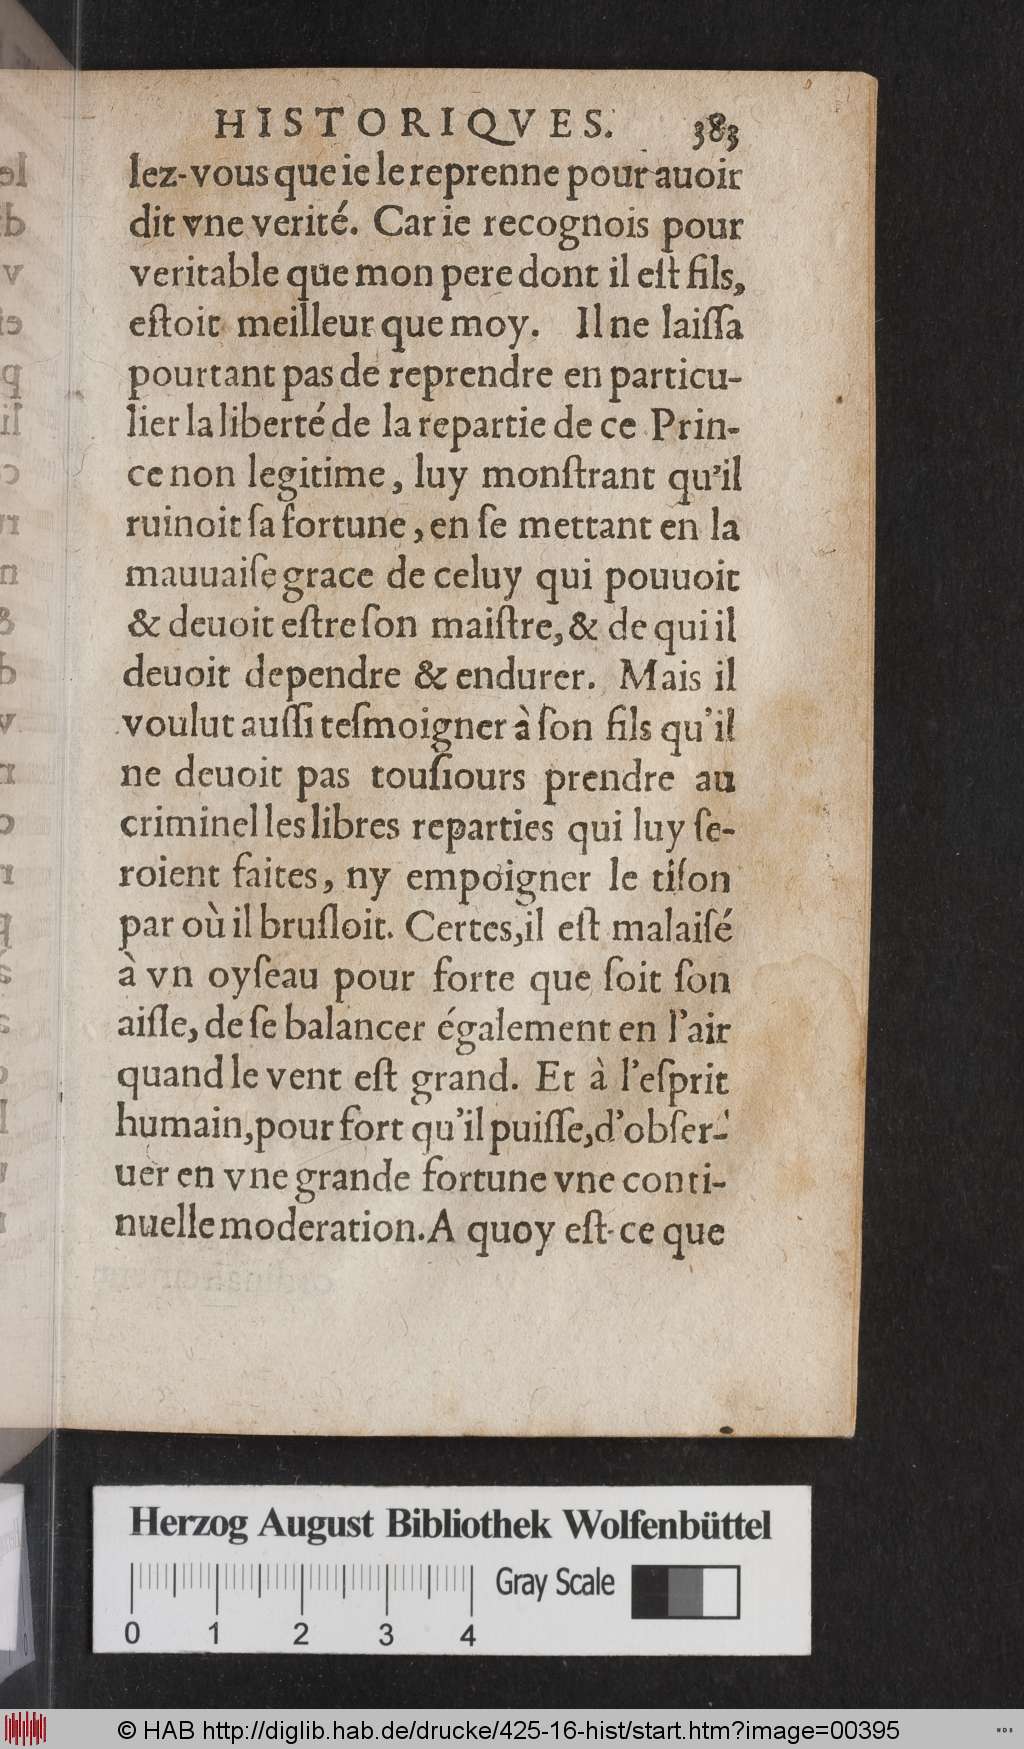 HISTORIQVES. 383
lez-vous que ie le reprenne pour auoir
dit vne verité. Car ie recognois pour
veritable que mon pere dont il eſt fils,
eſtoit meilleur que moy. Il ne laiſſa
pourtant pas de reprendre en particu-
lier la liberté de la repartie de ce Prin-
ce non legitime, luy monſtrant qu'il
ruinoit ſa fortune, en ſe mettant en la
mauuaiſe grace de celuy qui pouuoit
& deuoit eſtre ſon maiſtre, & de qui il
deuoit dependre & endurer. Mais il
voulut auſſi teſmoigner à ſon fils qu'il
ne deuoit pas touſiours prendre au
criminel les libres reparties qui luy ſe-
roient faites, ny empoigner le tiſon
par où il bruſloit. Certes, il eſt malaiſé
à vn oyſeau pour forte que ſoit ſon
aiſle, de ſe balancer également en l'air
quand le vent eſt grand. Et à l'eſprit
humain, pour fort qu'il puiſſe, d'obſer-
uer en vne grande fortune vne conti-
nuelle moderation. A quoy eſt-ce que
Herzog August Bibliothek Wolfenbüttel
Gray Scale
0 1 2 3 4
© HAB http://diglib.hab.de/drucke/425-16-hist/start.htm?image=00395